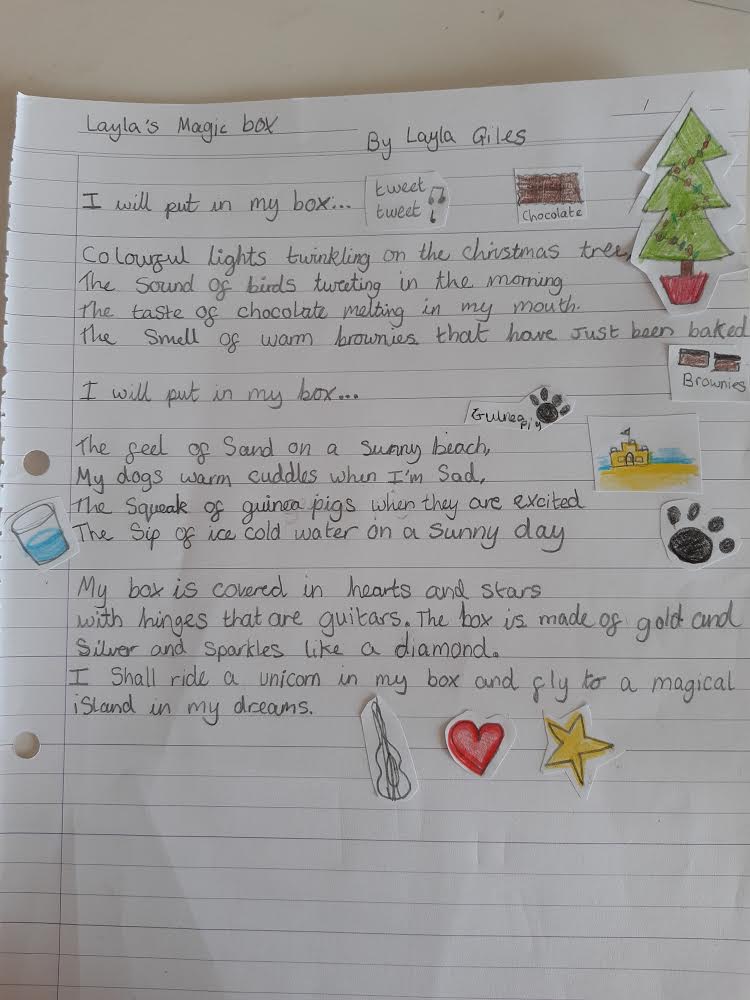 Layla's Magic box
By Layla Giles
I will put in my box...
tweet
tweet
Chocolate
Colourful lights twinkling on the christmas tree,
The Sound of birds tweeting in the morning
The taste of chocolate melting in my mouth.
The Smell of warm brownies that have just been baked
Brownies
I will put in my box...
Guinea
pig
The feel of Sand on a sunny beach,
My dogs warm cuddles when I'm Sad,
The Squeak of guinea pigs when they are excited
The Sip of ice cold water on a sunny day
My box is covered in hearts and stars
with hinges that are guitars. The box is made of gold and
Silver and sparkles like a diamond.
I Shall ride a unicorn in my box and fly to a magical
island in my dreams.